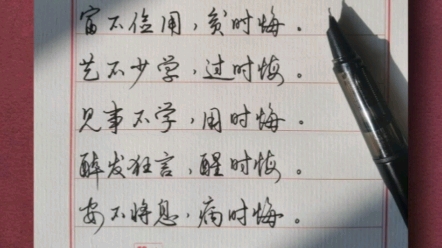 富不俭用，贫时悔。
艺不少学，过时悔。
见事不学，用时悔。
醉发狂言，醒时悔。
安不将息，病时悔。